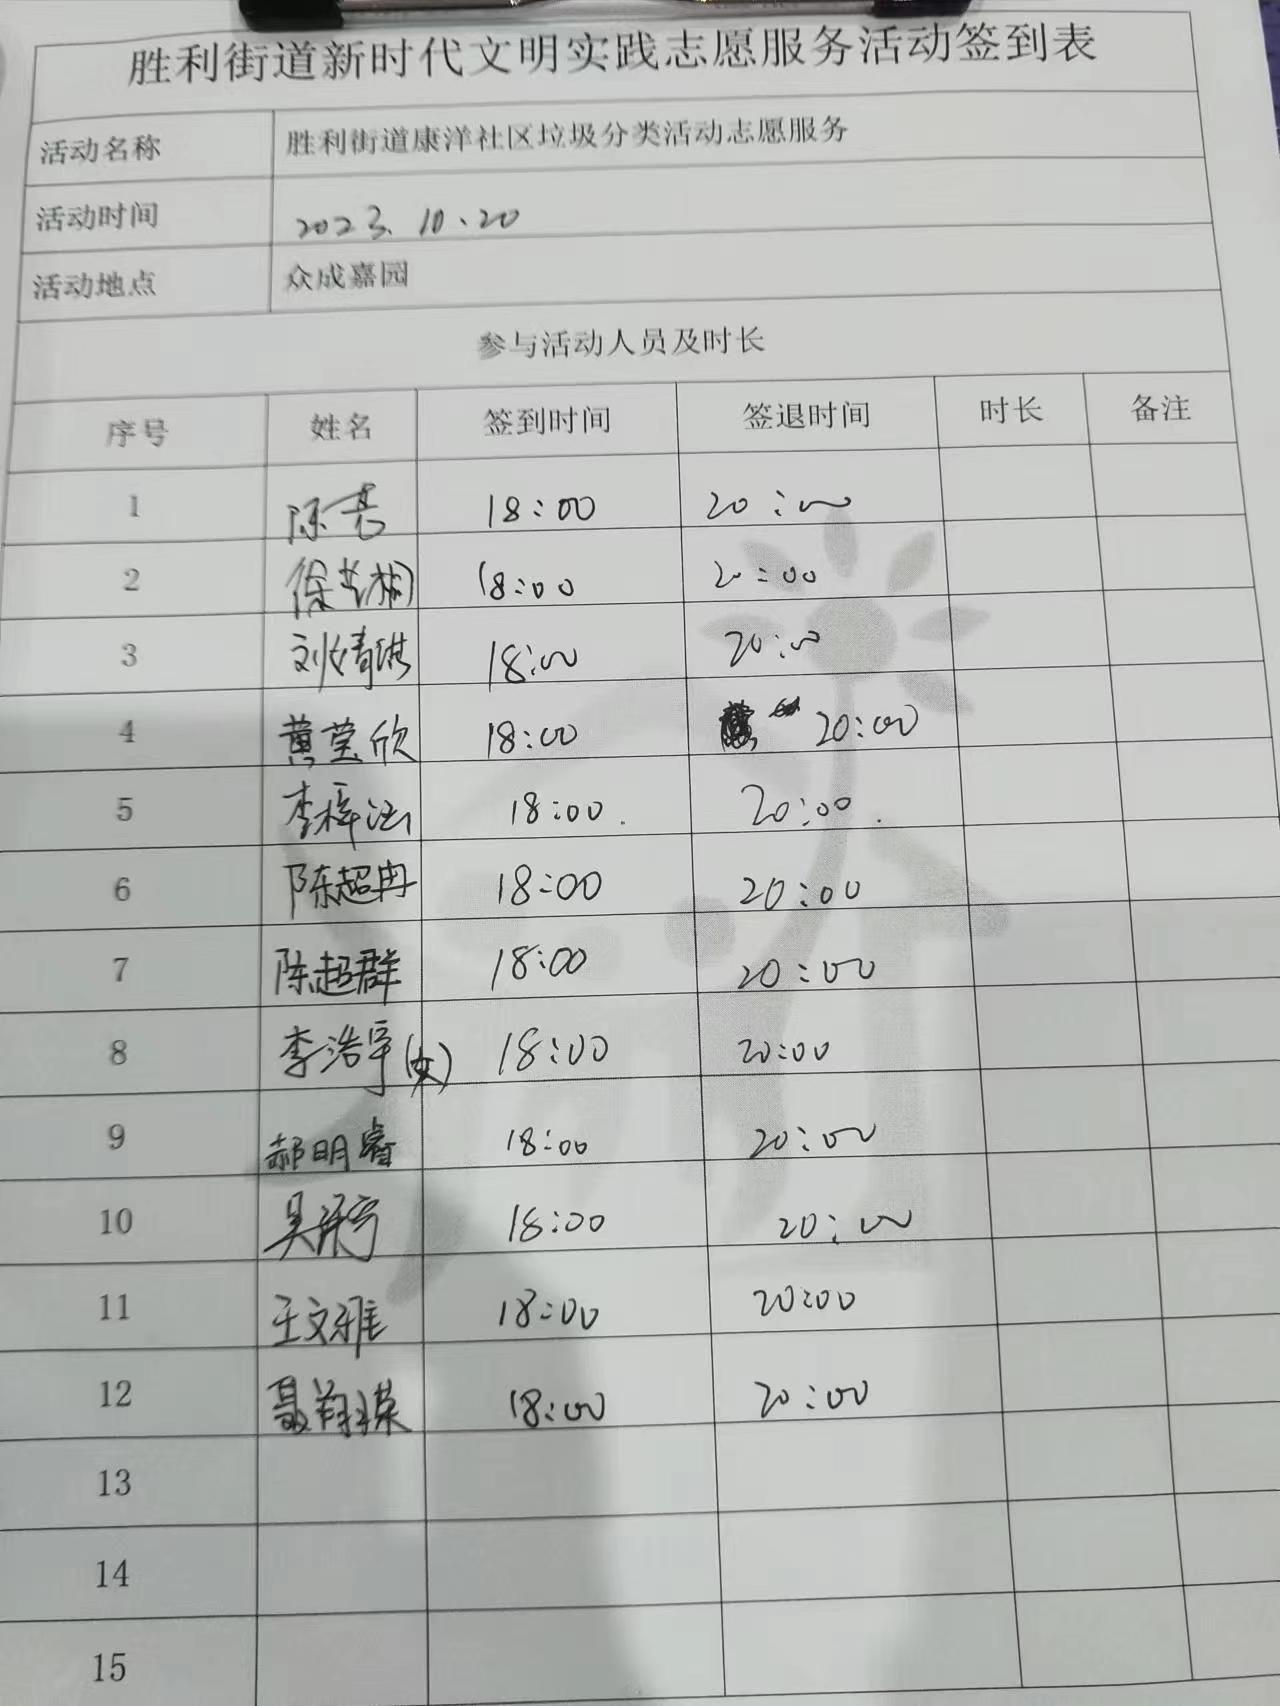 胜利街道新时代文明实践志愿服务活动签到表
活动名称 胜利街道康洋社区垃圾分类活动志愿服务
活动时间 2023.10.20
活动地点 众成嘉园
参与活动人员及时长
序号 姓名 签到时间 签退时间 时长 备注
1 陈亮 18:00 20:00
2 徐 18:00 20:00
3 刘婧琪 18:00 20:00
4 黄莹欣 18:00 20:00
5 李梓汕 18:00. 20:00.
6 陈超冉 18:00 20:00
7 陈超群 18:00 20:00
8 李浩宇(女) 18:00 20:00
9 郝明睿 18:00 20:00
10 吴 18:00 20:00
11 王文雅 18:00 20:00
12 聂 18:00 20:00
13
14
15